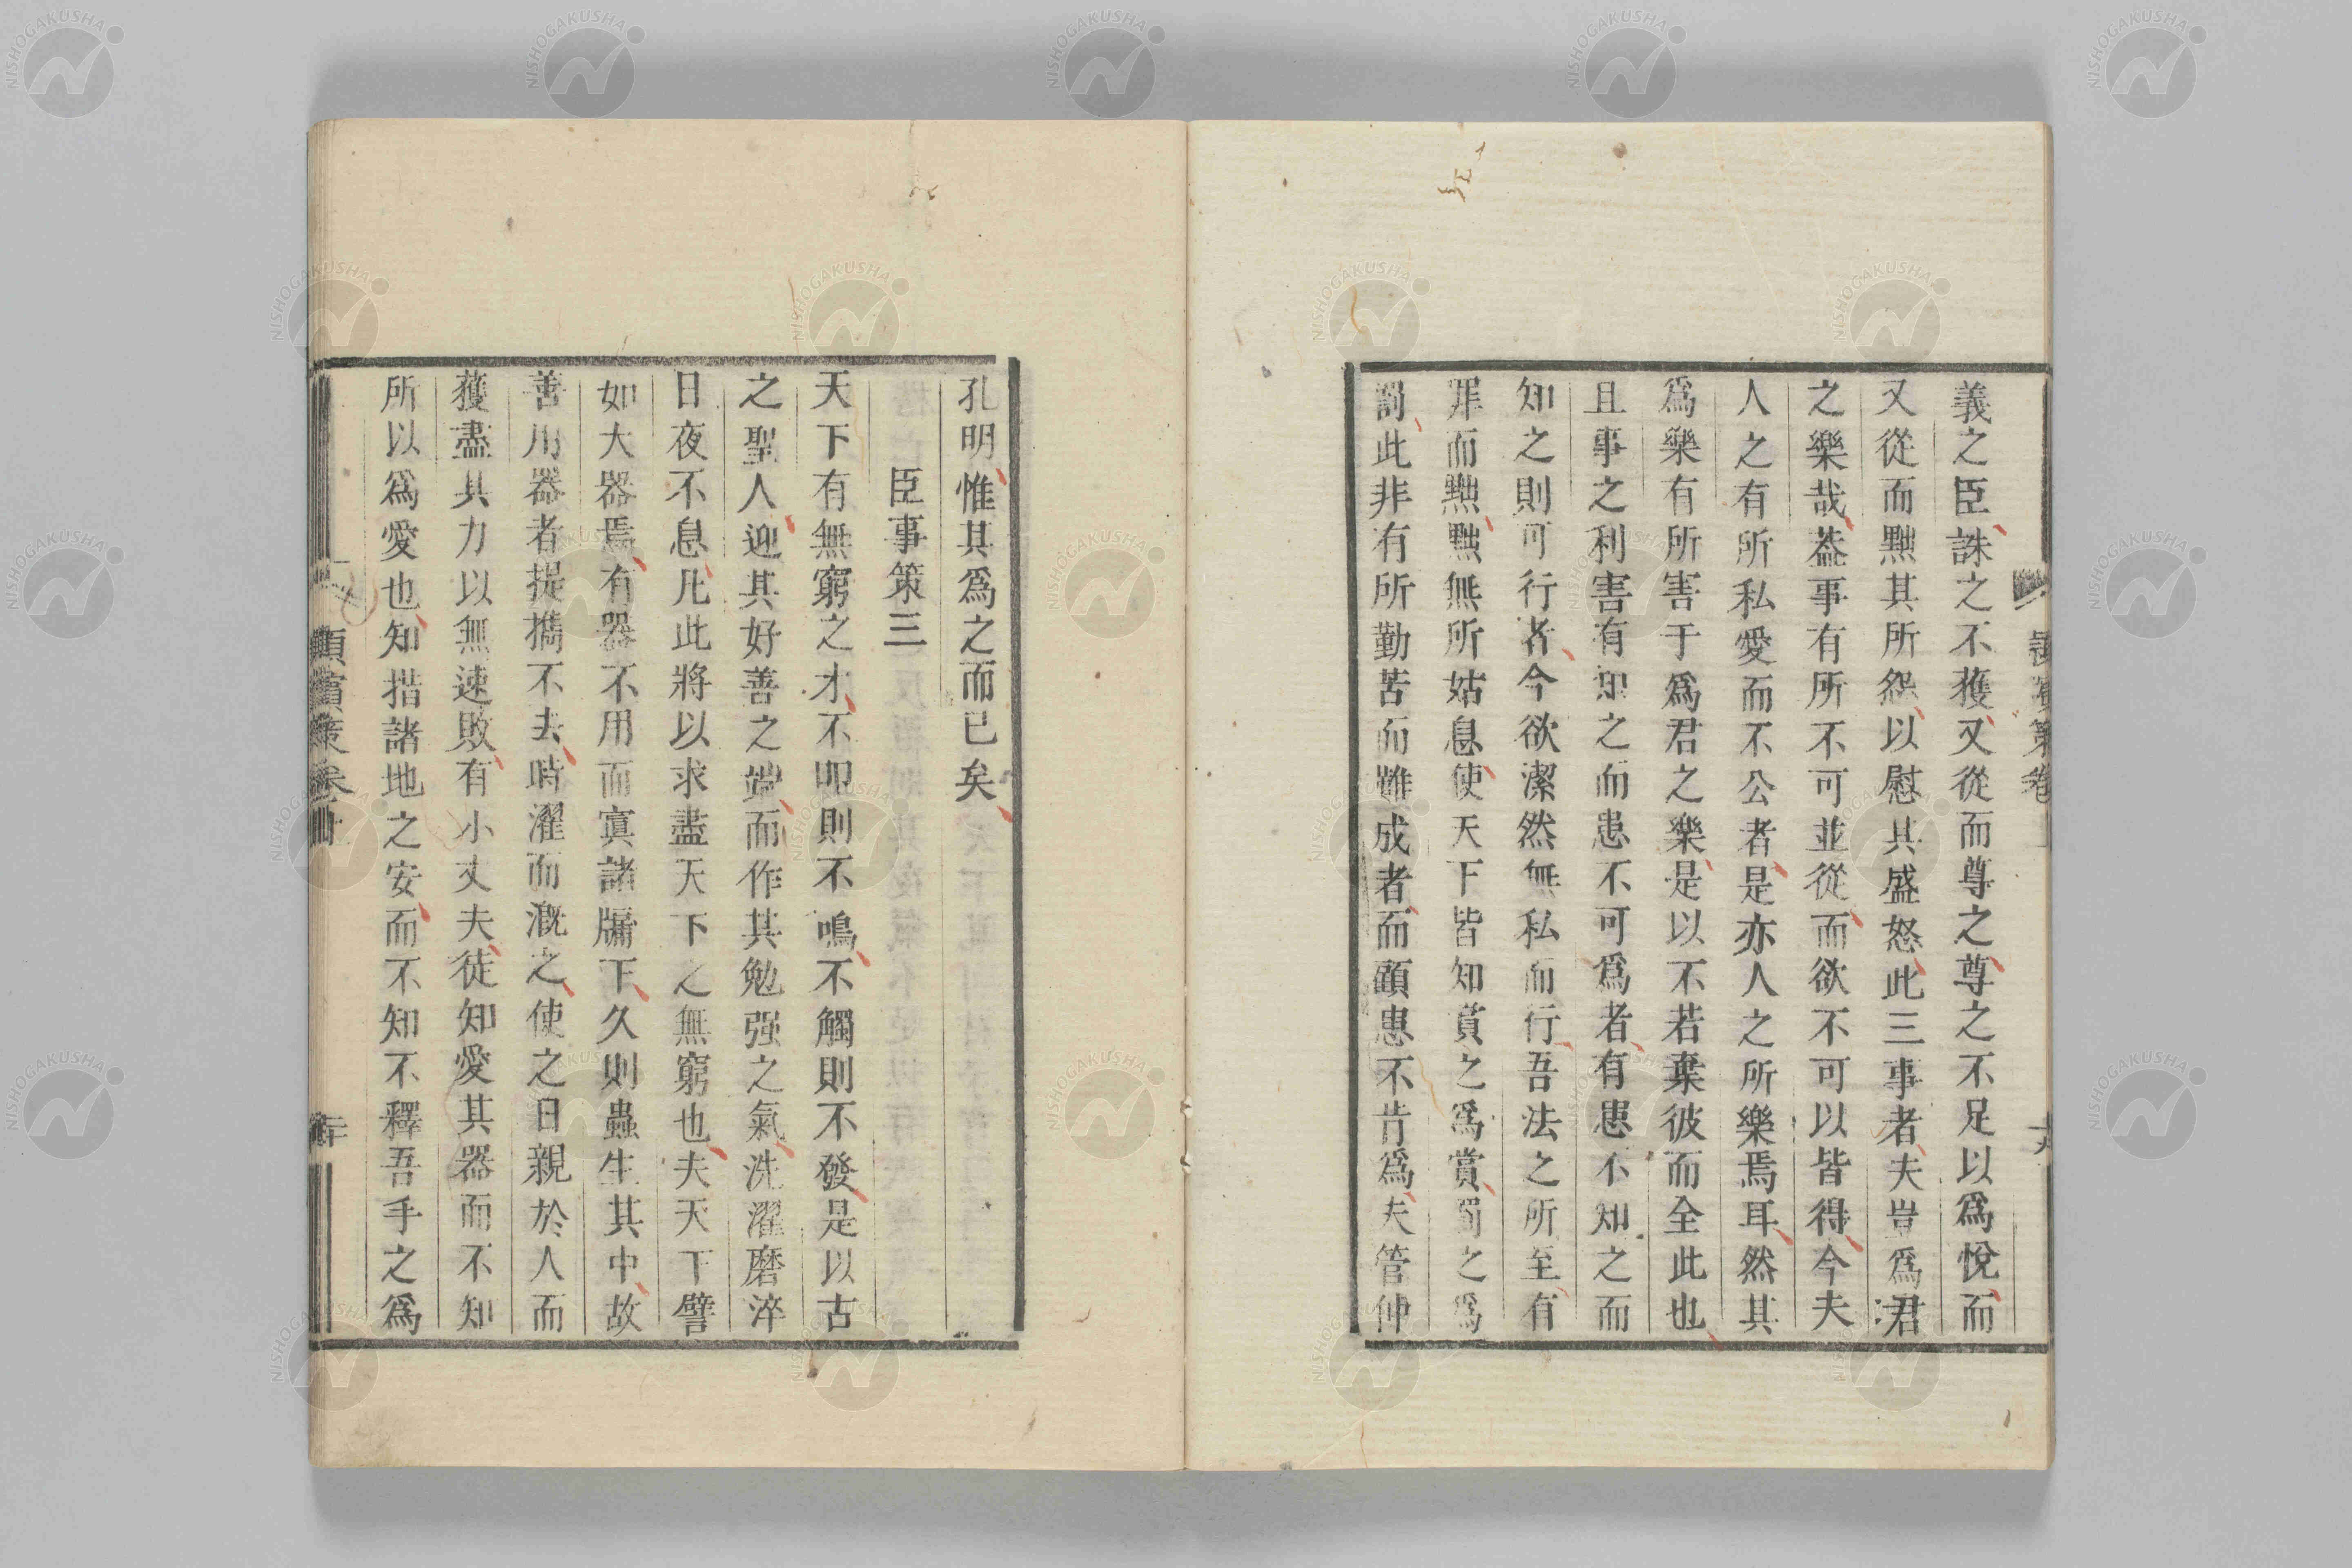 義之臣誅之不獲又從而尊之尊之不足以爲悅而
又從而黜其所怨以慰其盛怒此三事者夫豈爲君
之樂哉葢事有所不可並從而欲不可以皆得今夫
人之有所私愛而不公者是亦人之所樂焉耳然其
爲樂有所害于爲君之樂是以不若棄彼而全此也
且事之利害有知之而患不可爲者有患不知之而
知之則可行者今欲潔然無私而行吾法之所至有
罪而黜黜無所姑息使天下皆知賞之爲賞罰之爲
罰此非有所勤苦而難成者而顧患不肯爲夫管仲
孔明惟其爲之而已矣
臣事策三
天下有無窮之才不叩則不鳴不觸則不發是以古
之聖人迎其好善之端而作其勉强之氣洗濯磨淬
日夜不息凡此將以求盡天下之無窮也夫天下譬
如大器焉有器不用而寘諸牖下久則蟲生其中故
善用器者提攜不去時濯而溉之使之日親於人而
獲盡其力以無速敗有小丈夫徒知愛其器而不知
所以爲愛也知措諸地之安而不知不釋吾手之爲
潁濱策卷